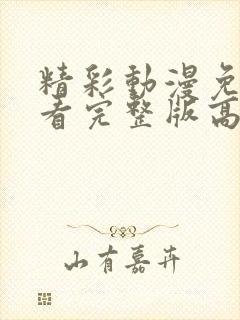 精彩動漫免
看完整版高
山有嘉卉